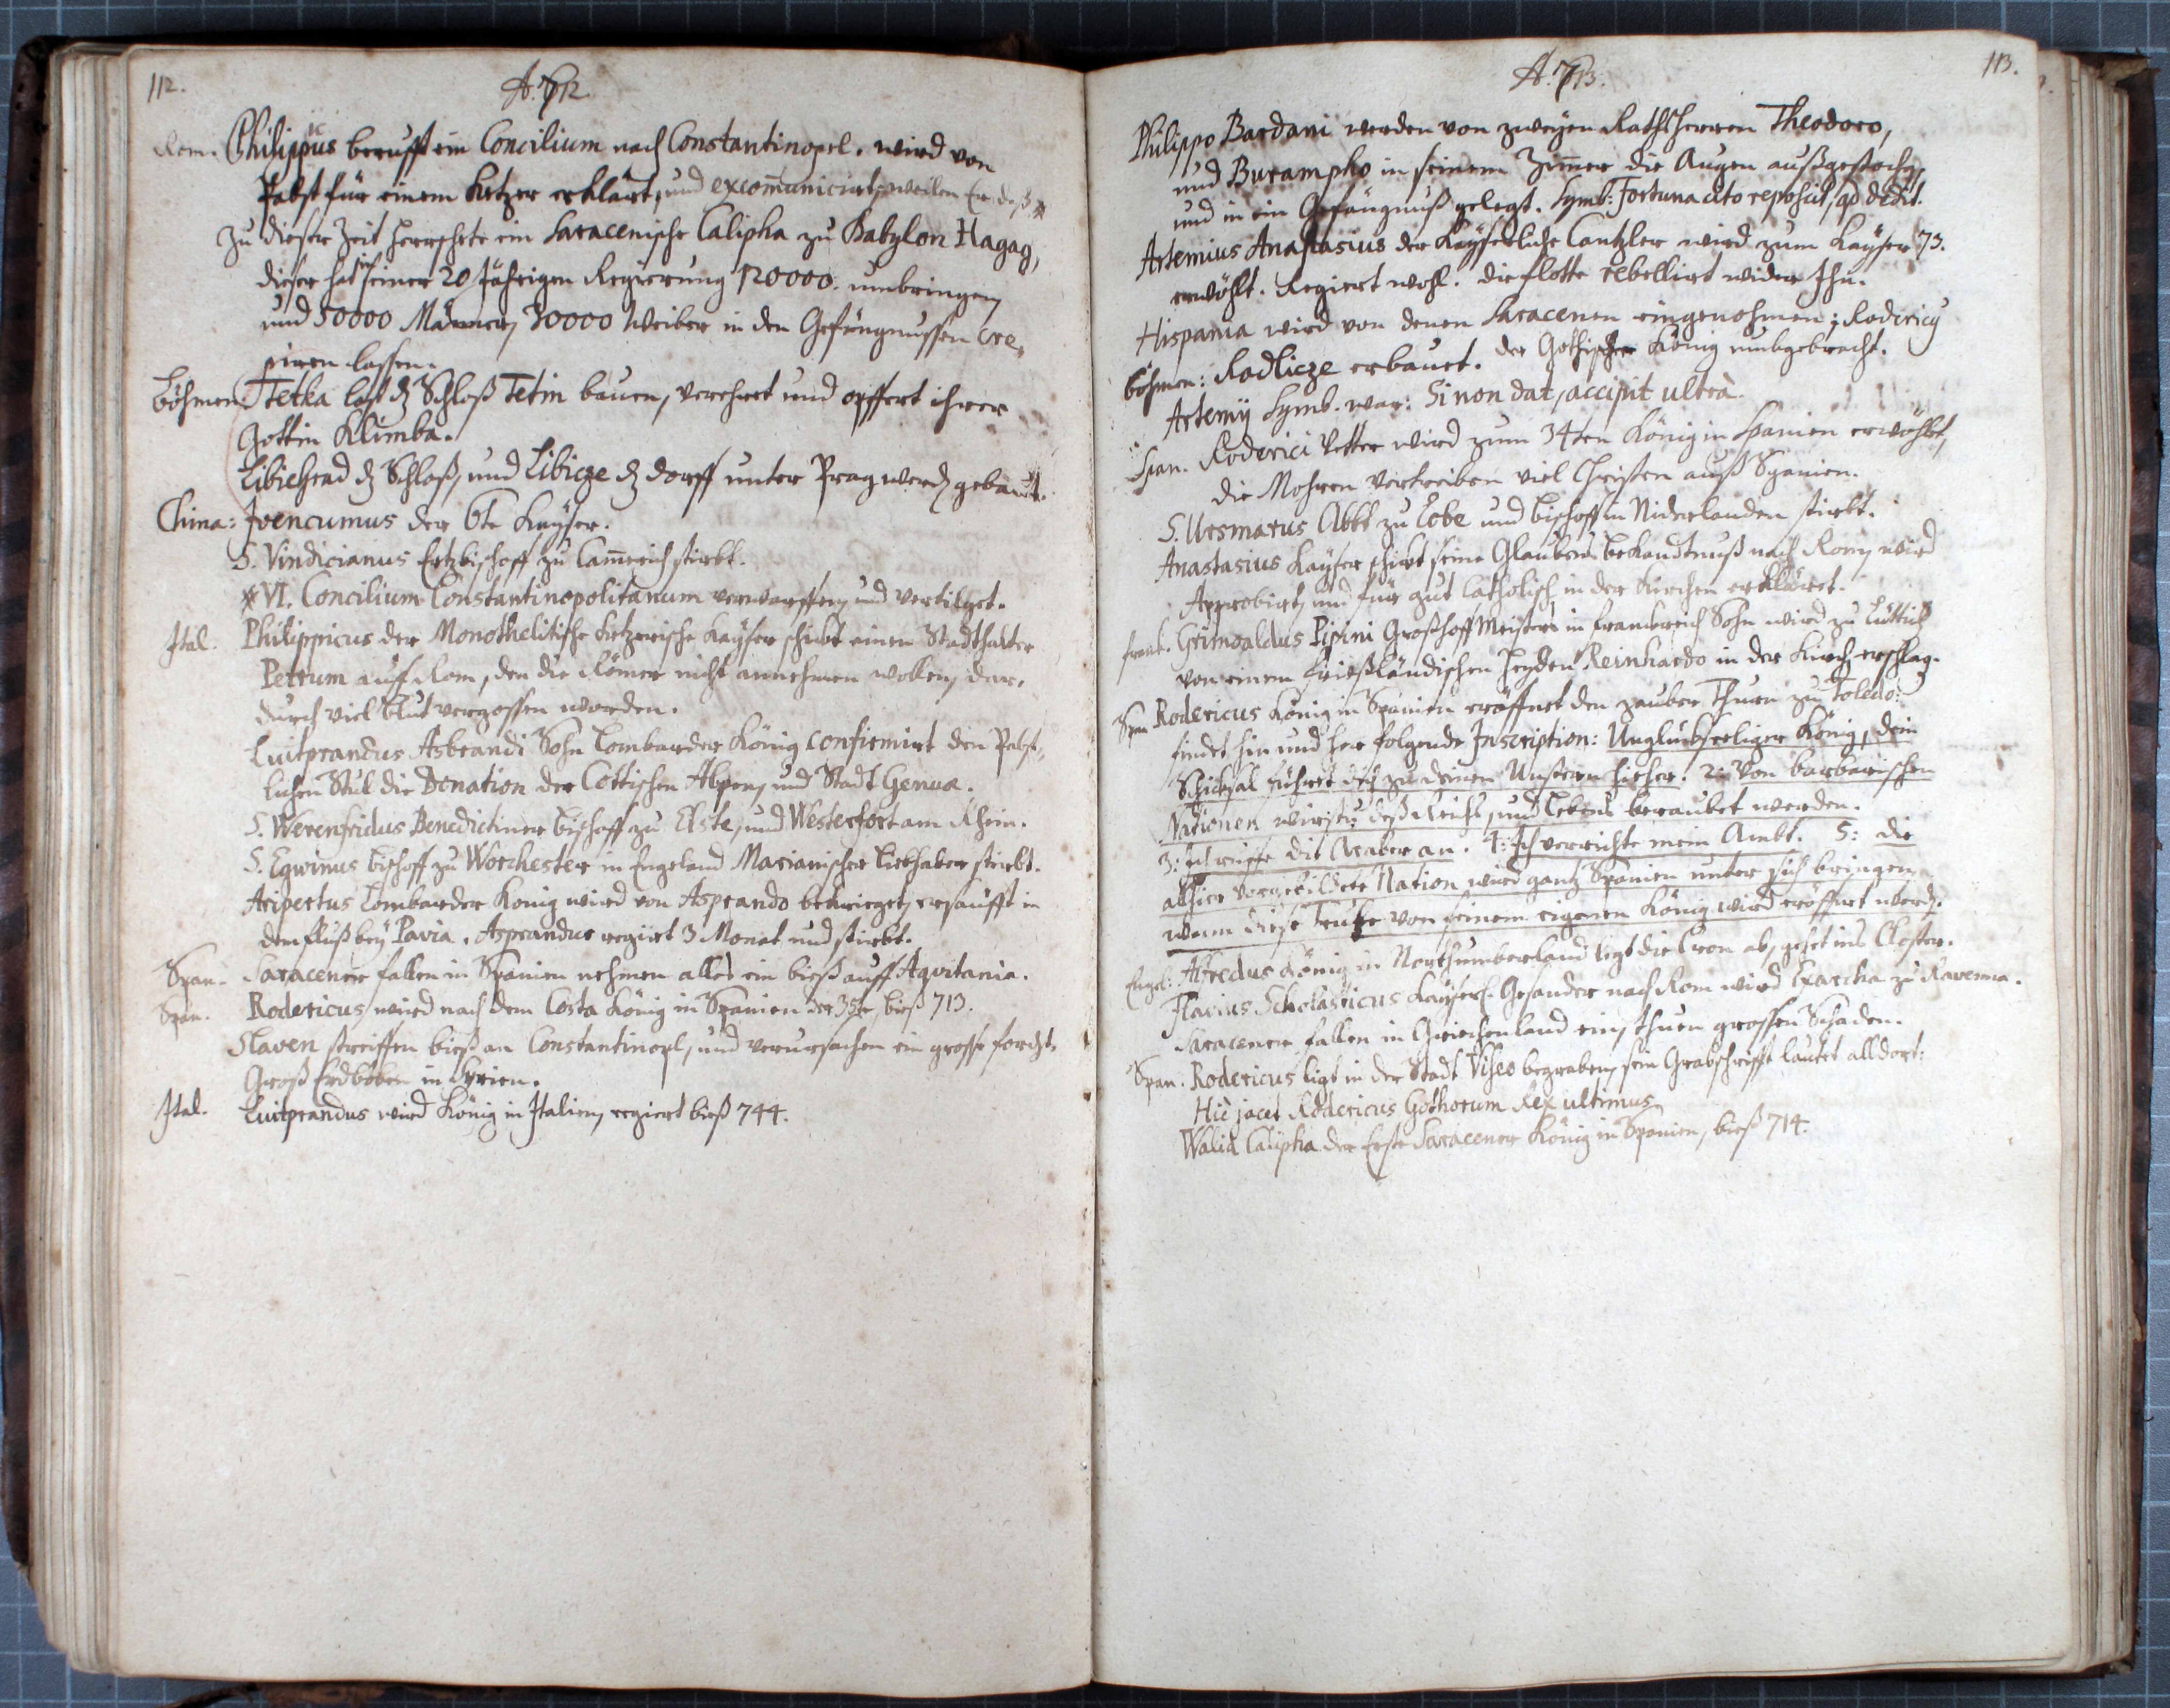 112.
A. 712.
Rom. Philippicus berufft ein Concilium nach Constantinopel. wird von
Pabst für einem Ketzer erklärt, und excom̄unicirt, weilen Er deß *
Zu dieser Zeit herrschete ein Saracenische Calipha zu Babylon Hagag,
dieser hat in seiner 20 Jährigen Regierung 120000. umbringen,
und 50000 Männer, 30000 Weiber in den Gefängnussen cre,
piren lassen.
Böhmen: Tetka last dz Schloß Tetin bauen, verehret und opffert ihrer
Gottin Klimba.
Libiehrad dz Schloß, und Libicze dz dorff unter Prag werden gebaut.
China: Ivencumus der 6te Kayser.
S. Vindicianus Ertzbischoff zu Cam̄erich stirbt.
* VI. Concilium Constantinopolitanum verworffen, und vertilget.
Ital. Philippicus der Monothelitische Ketzerische Kayser schickt einen Stadthalter
Petrum auf Rom, den die Römer nicht annehmen wollen, dar,
durch viel blut vergossen worden.
Luitprandus Asbrandi Sohn Lombarder König confirmirt den Pabst,
lichen Stul die Donation der Cottischen Alpen, und Stadt Genua.
S. Werenfridus Benedictiner bischoff zu Elste, und Westerfort am Rhein.
S. Egwinus bischoff zu Worchester in Engeland Marianischer liebhaber stirbt.
Aripertus Lombarder König wird von Asprando bekrieget, ersaufft in
dem fluß bey Pavia. Asprandus regirt 3 Monat und stirbt.
Span. Saracener fallen in Spanien nehmen alles ein bieß auff Aqvitania.
Span. Rodericus wird nach dem Costa König in Spanien der 35te, bieß 713.
Slaven streiffen bieß an Constantinopl, und verursachen ein grosse forcht.
Groß Erdböben in Syrien.
Ital. Luitprandus wird König in Italien, regiert bieß 744.
113.
A. 713.
Philippo Bardani werden von zweyen Rathsherren Theodoro,
und Burampho in seinem Zim̄er die Augen außgestochen,
und in ein Gefängnuß gelegt. Symb: Fortuna cito reposcit, qd dedit.
Artemius Anastasius der Kayserliche Cantzler wird zum Kayser 73.
erwöhlt. Regiert wohl. die flotte rebellirt wider Ihn.
Hispania wird von denen Saracenen eingenohmen; Rodericy
der Gothischer König umbgebracht.
böhmen: Radlicze erbauet.
Artemij Symb. war: Si non dat, accipit ultrà.
Span. Roderici Vetter wird zum 34ten König in Spanien erwöhlet,
die Mohren vertreiben viel Christen auß Spanien.
S. Ursmarus Abbt zu Lobe und bischoff in Niderlanden stirbt.
Anastasius Kayser schickt seine Glaubens bekandtnuß nach Rom, wird
Approbirt, und für gut Catholisch in der Kirchen erkläret.
frank. Grimoaldus Pipini Großhoff Meisters in frankreich Sohn wird zu Lüttich
von einem frießländischen Heyden Reinhardo in der Kirch erschlag.
Span Rodericus König in Spanien eröffnet den zauber Thurn zu Toledo:
findet hin und her folgende Inscription: Unglückseeliger König, dein
Schicksal führet dich zu deinen Unstern hieher. 2: Von barbarischen
Nationen wirstu deß Reichs, und lebens beraubet werden.
3: Ich ruffe die Araber an. 4: Ich verrichte mein Ambt. 5: die
allhier vorgebildete Nation wird gantz Spanien unter sich bringen,
wann diese von seinem eigenen König wird eröffnet werd.
Engel: Alfredus König in Northumberland legt die Cron ab, gehet ins Closter.
Flavius Scholasticus Kayserl. Gesander nach Rom wird Exarcha zu Ravenna.
Saracener fallen in Griechenland ein, thuen grossen Schaden.
Span. Rodericus ligt in der Stadt Viseo begraben, sein Grabschrifft lautet alldort:
Hic jacet Rodericus Gothorum Rex ultimus
Walid Calipha der Erste Saracener König in Spanien, bieß 714.